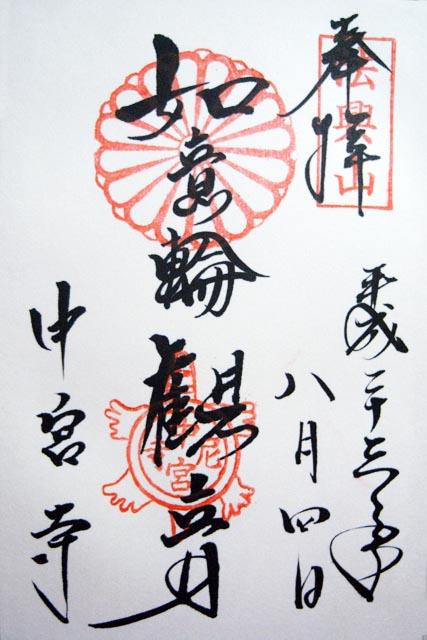 奉拝
法興山
平成二十三年
八月四日
如意輪観音
中宮寺